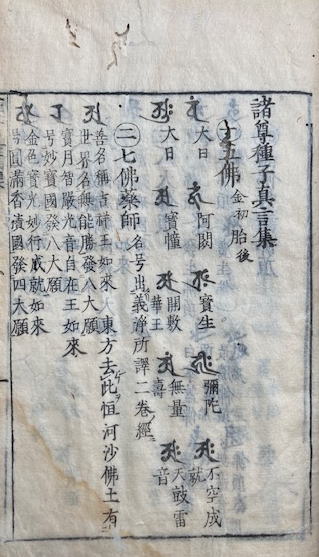 諸尊種子真言集
十五佛 金初胎後
大日 阿閦 寶生 彌陀 不空成就
大日 寶幢 開敷華王 無量壽 天鼓雷音
二七佛藥師 名号出義淨所譯二卷經
善名稱吉祥王如來 東方去此恒河沙佛土有
世界名無能勝發八大願
寶月智嚴光音自在王如來
号妙寶國發八大願
金色寶光妙行成就如來
号圓滿香積國發四大願